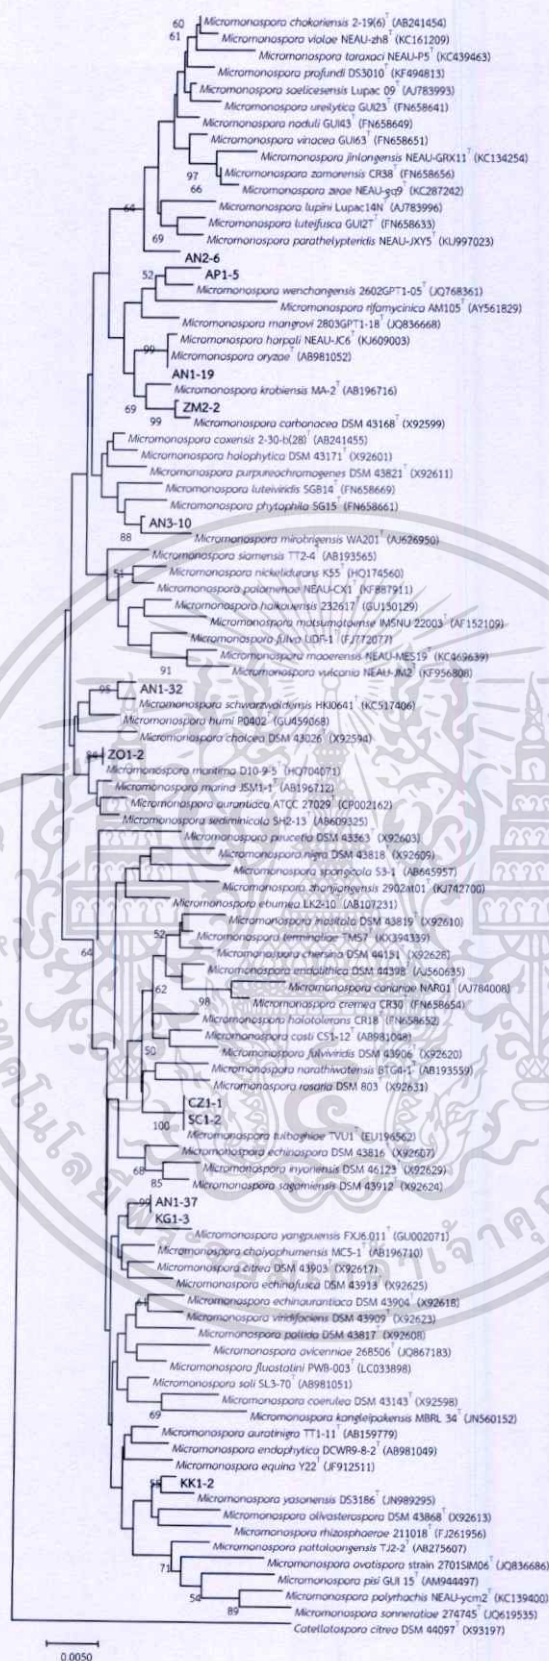 60
Micromonospora chokoriensis 2-19(6)T (AB241454)
61
Micromonospora violae NEAU-zh8T (KC161209)
Micromonospora taraxaci NEAU-P5T (KC439463)
Micromonospora profundi DS3010T (KF494813)
Micromonospora saelicesensis Lupac 09T (AJ783993)
Micromonospora ureilytica GUI23T (FN658641)
Micromonospora noduli GUI43T (FN658649)
Micromonospora vinacea GUI63T (FN658651)
Micromonospora jinlongensis NEAU-GRX11T (KC134254)
97
Micromonospora zamorensis CR38T (FN658656)
66
Micromonospora zeae NEAU-gq9T (KC287242)
64
Micromonospora lupini Lupac14NT (AJ783996)
Micromonospora luteifusca GUI2TT (FN658633)
69
Micromonospora parathelypteridis NEAU-JXY5T (KU997023)
AN2-6
52
AP1-5
Micromonospora wenchangensis 2602GPT1-05T (JQ768361)
Micromonospora rifamycinica AM105T (AY561829)
Micromonospora mangrovi 2803GPT1-18T (JQ836668)
Micromonospora harpali NEAU-JC6T (KJ609003)
99
Micromonospora oryzaeT (AB981052)
AN1-19
Micromonospora krabiensis MA-2T (AB196716)
69
ZM2-2
99
Micromonospora carbonacea DSM 43168T (X92599)
Micromonospora coxensis 2-30-b(28)T (AB241455)
Micromonospora halophytica DSM 43171T (X92601)
Micromonospora purpureochromogenes DSM 43821T (X92611)
Micromonospora luteiviridis SGB14T (FN658669)
Micromonospora phytophila SG15T (FN658661)
AN3-10
88
Micromonospora mirobrigensis WA201T (AJ626950)
Micromonospora siamensis TT2-4T (AB193565)
51
Micromonospora nickelidurans K55T (HQ174560)
Micromonospora palomenae NEAU-CX1T (KF887911)
Micromonospora haikouensis 232617T (GU130129)
Micromonospora matsumotoense IMSNU 22003T (AF152109)
Micromonospora fulva UDF-1T (FJ772077)
Micromonospora maoerensis NEAU-MES19T (KC469639)
91
Micromonospora vulcania NEAU-JM2T (KF956808)
95
AN1-32
Micromonospora schwarzwaldensis HKI0641T (KC517406)
Micromonospora humi P0402T (GU459068)
Micromonospora chalcea DSM 43026T (X92594)
ZO1-2
Micromonospora maritima D10-9-5T (HQ704071)
Micromonospora marina JSM1-1T (AB196712)
Micromonospora aurantiaca ATCC 27029T (CP002162)
Micromonospora sediminicola SH2-13T (AB609325)
Micromonospora peucetia DSM 43363T (X92603)
Micromonospora nigra DSM 43818T (X92609)
Micromonospora spongicola S3-1T (AB645957)
Micromonospora zhanjiangensis 2902at01T (KJ742700)
Micromonospora eburnea LK2-10T (AB107231)
64
Micromonospora inositola DSM 43819T (X92610)
52
Micromonospora terminaliae TMS7T (KX394339)
Micromonospora chersina DSM 44151T (X92628)
Micromonospora endolithica DSM 44398T (AJ560635)
62
Micromonospora coriariae NAR01T (AJ784008)
98
Micromonospora cremea CR30T (FN658654)
Micromonospora halotolerans CR18T (FN658652)
Micromonospora costi CS1-12T (AB981048)
50
Micromonospora fulviviridis DSM 43906T (X92620)
Micromonospora narathiwatensis BTG4-1T (AB193559)
Micromonospora rosaria DSM 803T (X92631)
CZ1-1
100
SC1-2
Micromonospora tulbaghiae TVU1T (EU196562)
Micromonospora echinospora DSM 43816T (X92607)
68
Micromonospora inyonensis DSM 46123T (X92629)
85
Micromonospora sagamiensis DSM 43912T (X92624)
99
AN1-37
KG1-3
Micromonospora yangpuensis FXJ6.011T (GU002071)
Micromonospora chaiyaphumensis MC5-1T (AB196710)
Micromonospora citrea DSM 43903T (X92617)
Micromonospora echinofusca DSM 43913T (X92625)
Micromonospora echinaurantiaca DSM 43904T (X92618)
Micromonospora viridifaciens DSM 43909T (X92623)
Micromonospora pallida DSM 43817T (X92608)
Micromonospora avicenniae 268506T (JQ867183)
Micromonospora fluostatini PWB-003T (LC033898)
Micromonospora soli SL3-70T (AB981051)
Micromonospora coerulea DSM 43143T (X92598)
69
Micromonospora kangleipakensis MBRL 34T (JN560152)
Micromonospora auratinigra TT1-11T (AB159779)
Micromonospora endophytica DCWR9-8-2T (AB981049)
Micromonospora equina Y22T (JF912511)
KK1-2
Micromonospora yasonensis DS3186T (JN989295)
Micromonospora olivasterospora DSM 43868T (X92613)
Micromonospora rhizosphaerae 211018T (FJ261956)
Micromonospora pattaloongensis TJ2-2T (AB275607)
71
Micromonospora ovatispora strain 2701SIM06T (JQ836686)
Micromonospora pisi GUI 15T (AM944497)
54
Micromonospora polyrhachis NEAU-ycm2T (KC139400)
89
Micromonospora sonneratiae 274745T (JQ619535)
Catellatospora citrea DSM 44097T (X93197)
0.0050